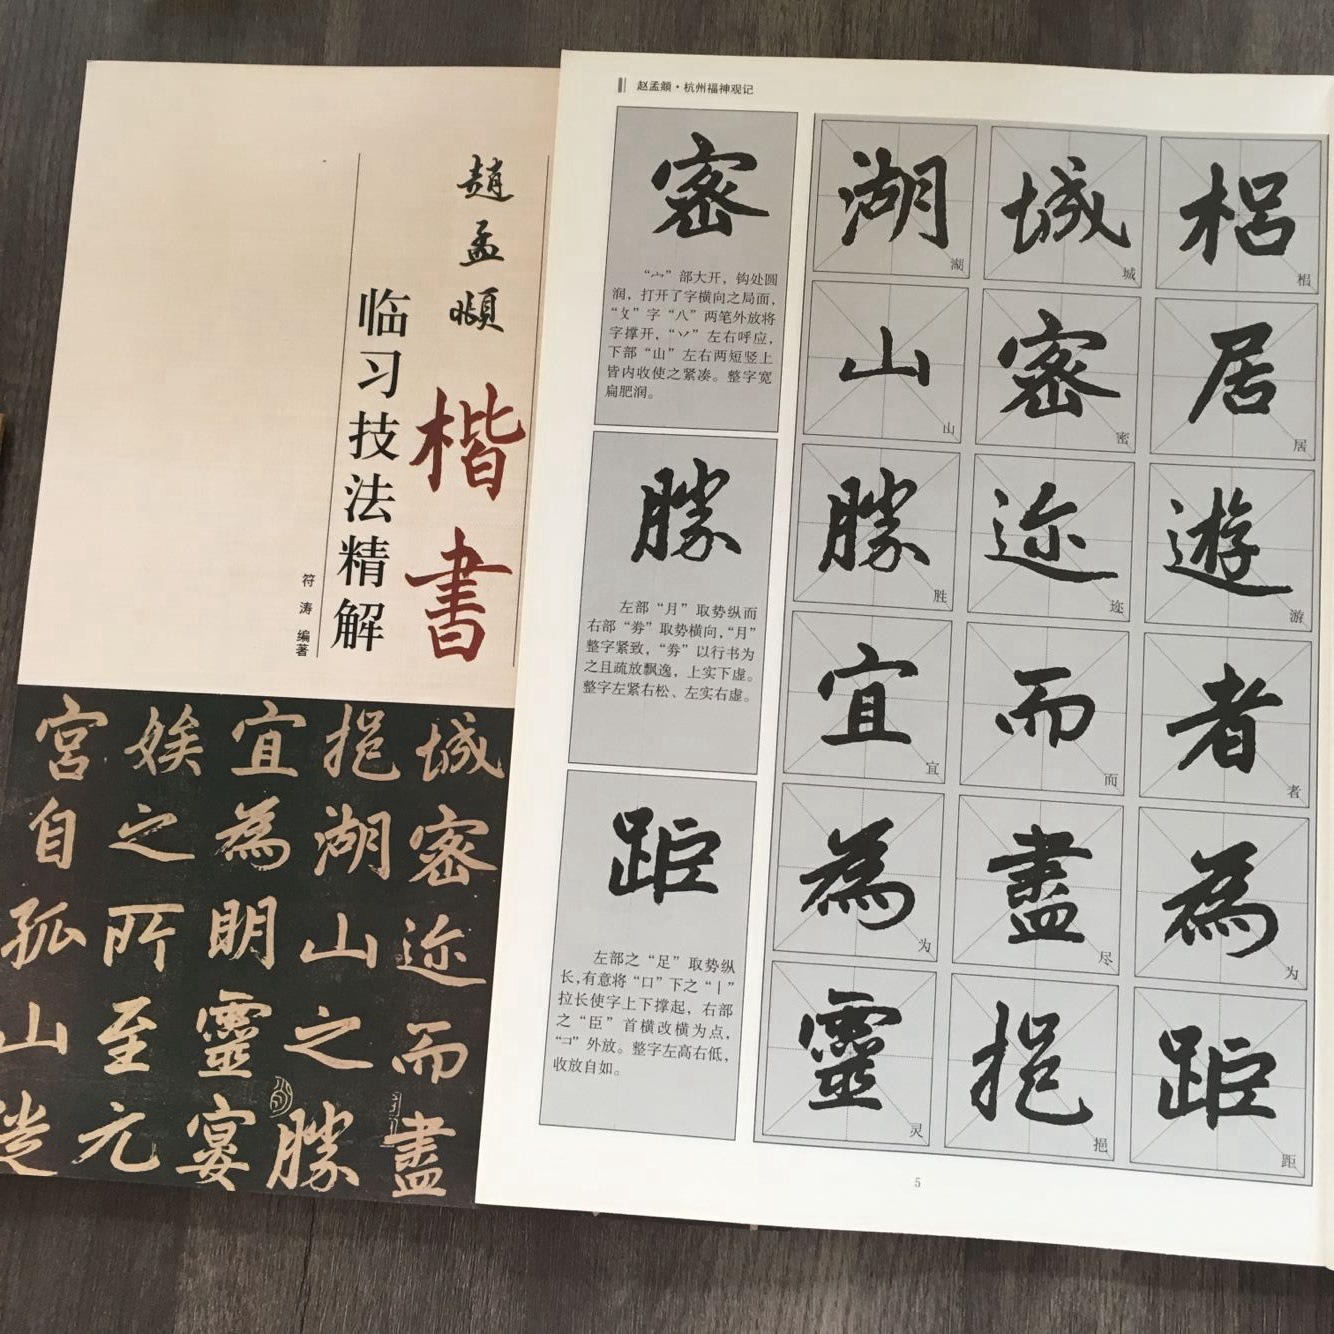 趙孟頫
楷書
临习技法精解
符涛 编著
城密迩而盡
挹湖山之勝
宜為明靈宴
娭之所至元
宮自孤山
赵孟頫·杭州福神观记
密
“宀”部大开，钩处圆
润，打开了字横向之局面，
字“八”两笔外放将
字撑开，“丷”左右呼应，
下部“山”左右两短竖上
皆内收使之紧凑。整字宽
扁肥润。
勝
左部“月”取势纵而
右部“劵”取势横向，“月”
整字紧致，“劵”以行书为
之且疏放飘逸，上实下虚。
整字左紧右松、左实右虚。
距
左部之“足”取势纵
长，有意将“口”下之“丨”
拉长使字上下撑起，右部
之“臣”首横改横为点，
“コ”外放。整字左高右低，
收放自如。
梠 梠
居 居
遊 游
者 者
為 为
距 距
城 城
密 密
迩 迩
而 而
盡 尽
挹 挹
湖 湖
山 山
勝 胜
宜 宜
為 为
靈 灵
5